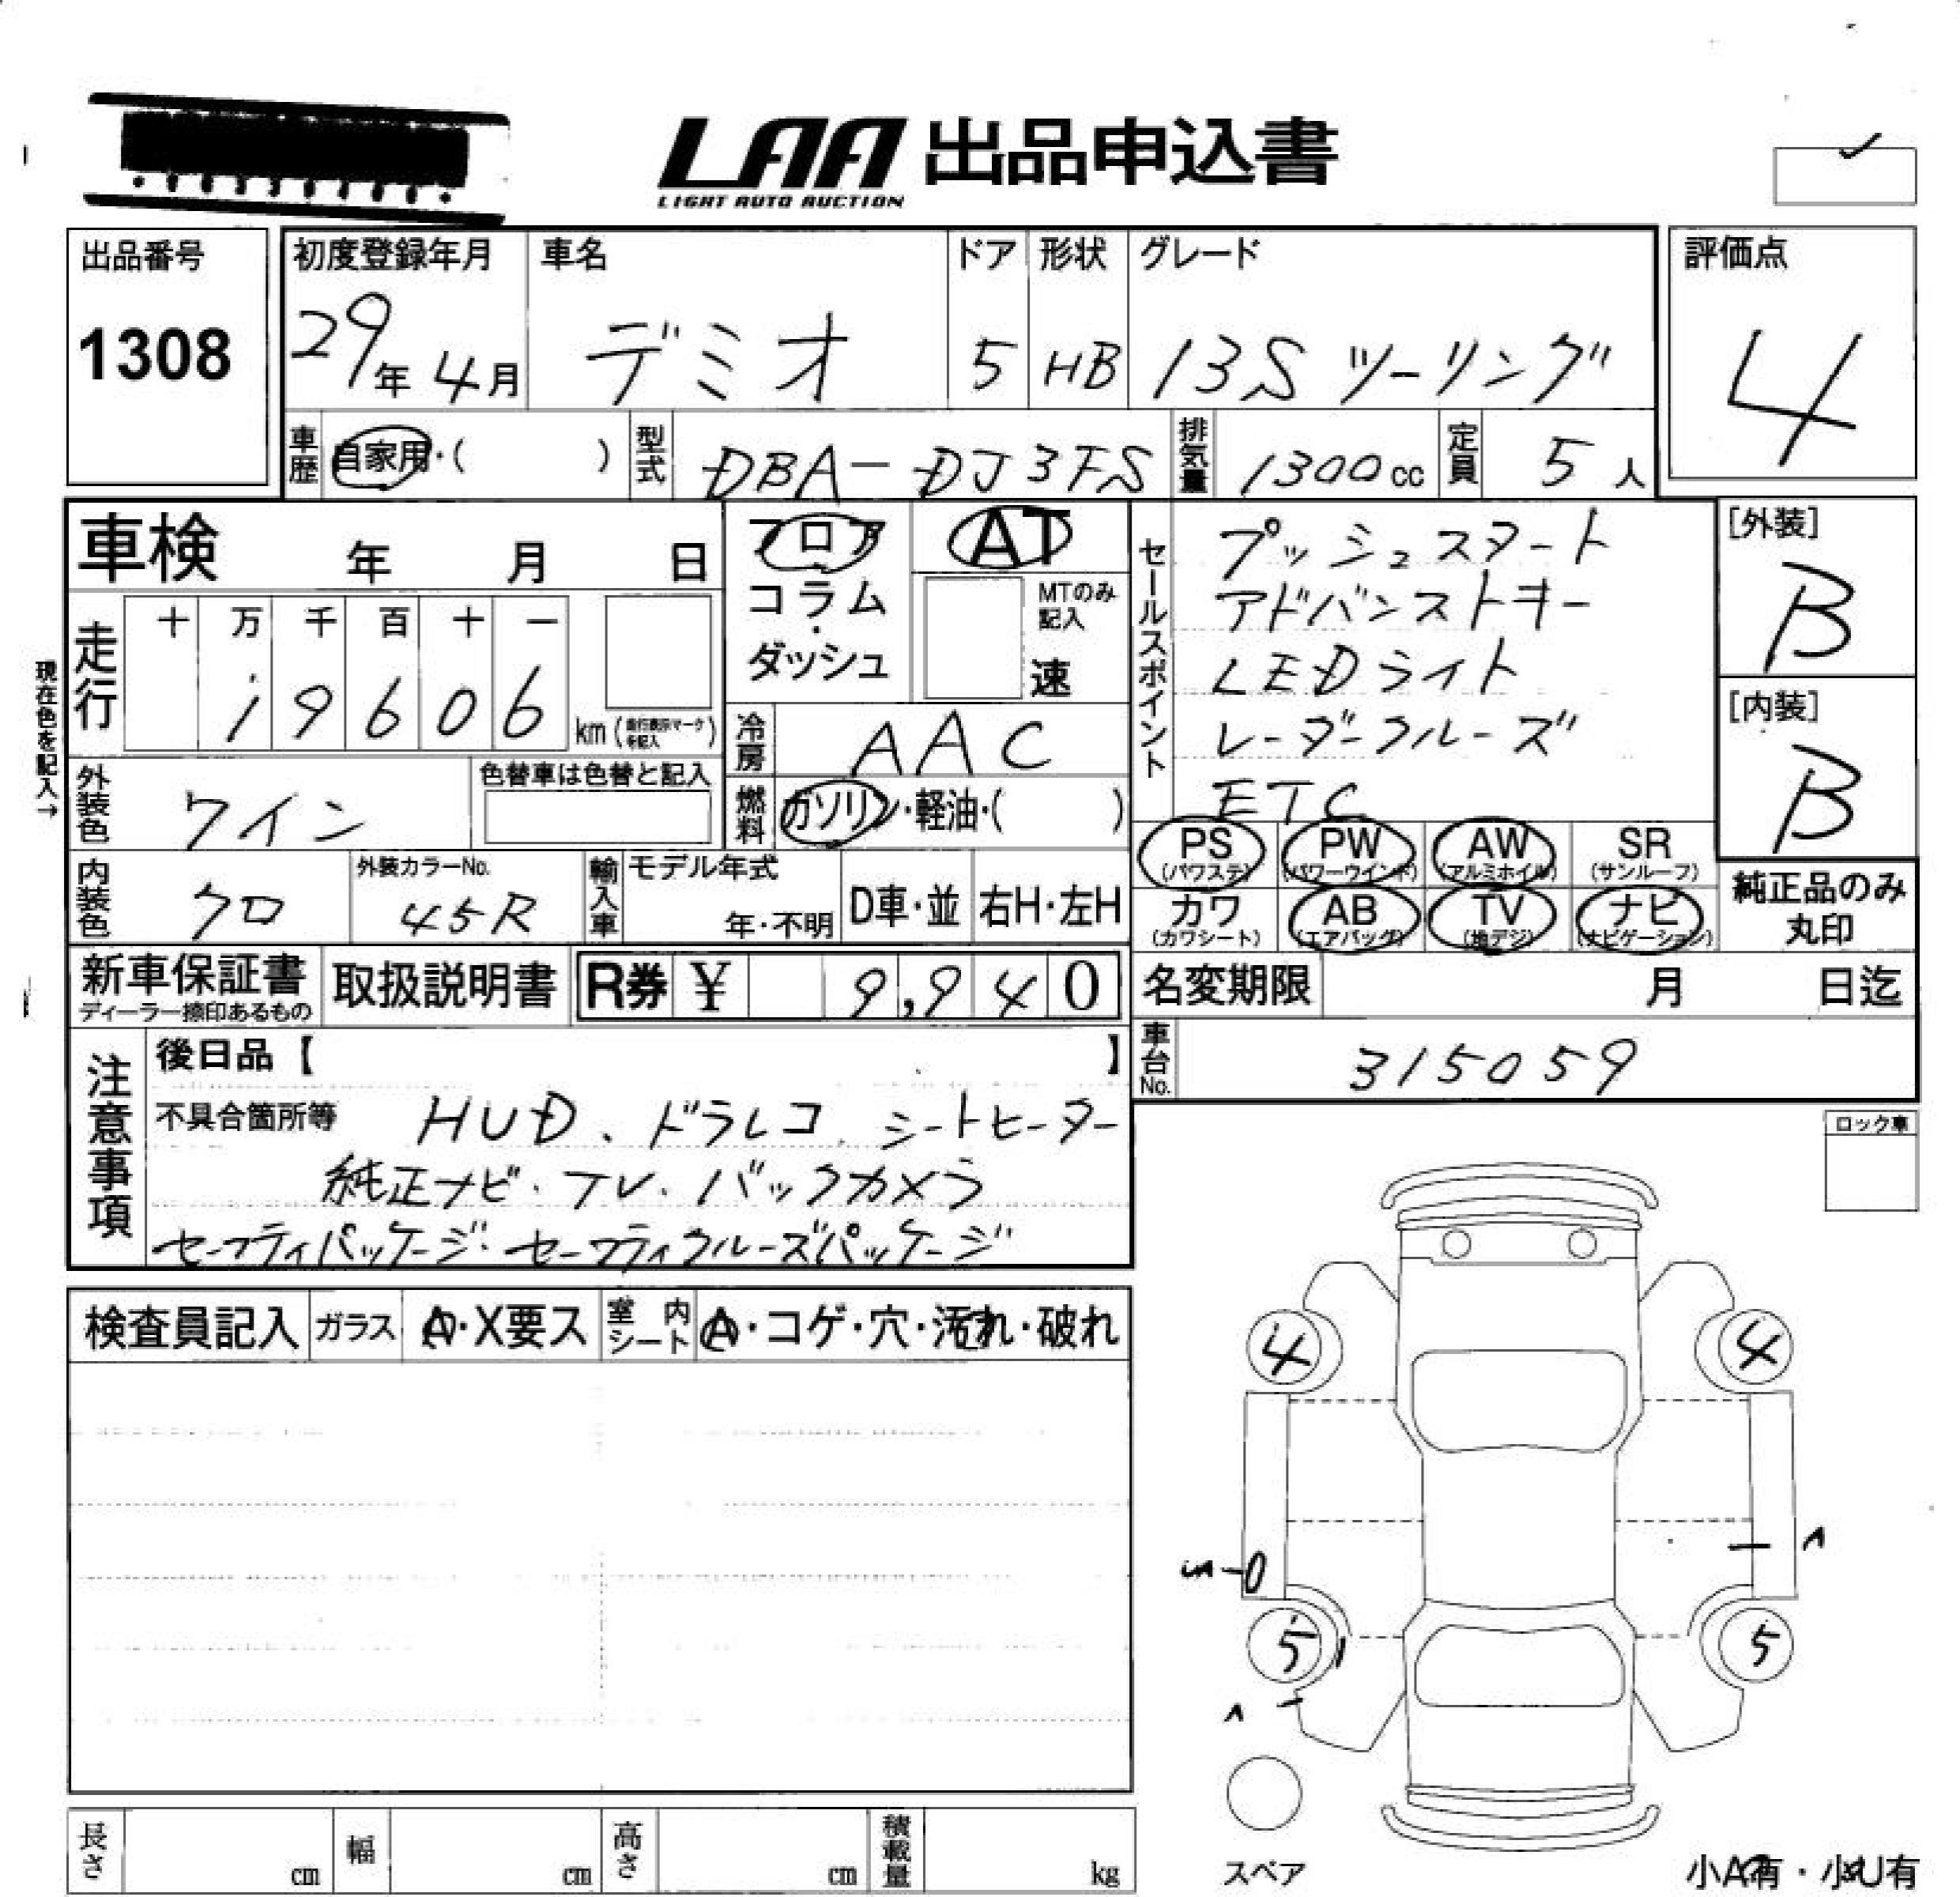 LAA 出品申込書
LIGHT AUTO AUCTION
出品番号 初度登録年月 車名 ドア 形状 グレード 評価点
1308 29年 4月 デミオ 5 HB 13S ツーリング 4
車歴 自家用・( ) 型式 DBA-DJ3FS 排気量 1300cc 定員 5人
車検 年 月 日 フロア AT
コラム・ダッシュ MTのみ記入 速
セールスポイント プッシュスタート
アドバンストキー
LEDライト
レーダークルーズ
ETC
[外装]
B
[内装]
B
現在色を記入→
走行 十 万 千 百 十 一
1 9 6 0 6 km (走行表示マークを記入)
冷房 AAC
外装色 ワイン 色替車は色替と記入 燃料 ガソリン・軽油・( )
PS (パワステ) PW (パワーウインド) AW (アルミホイル) SR (サンルーフ)
カワ (カワシート) AB (エアバッグ) TV (地デジ) ナビ (ナビゲーション)
純正品のみ
丸印
内装色 クロ 外装カラーNo. 45R 輸入車 モデル年式 年・不明 D車・並 右H・左H
新車保証書 取扱説明書 R券 ¥ 9,940 名変期限 月 日迄
ディーラー捺印あるもの
車台No. 315059
注意事項 後日品【 】
不具合箇所等 HUD、ドラレコ、シートヒーター
純正ナビ・TV・バックカメラ
セーフティパッケージ・セーフティクルーズパッケージ
ロック車
検査員記入 ガラス A・X要ス 室内シート A・コゲ・穴・汚れ・破れ
4 4
5 5
スペア
長さ cm 幅 cm 高さ cm 積載量 kg
小A有・小U有